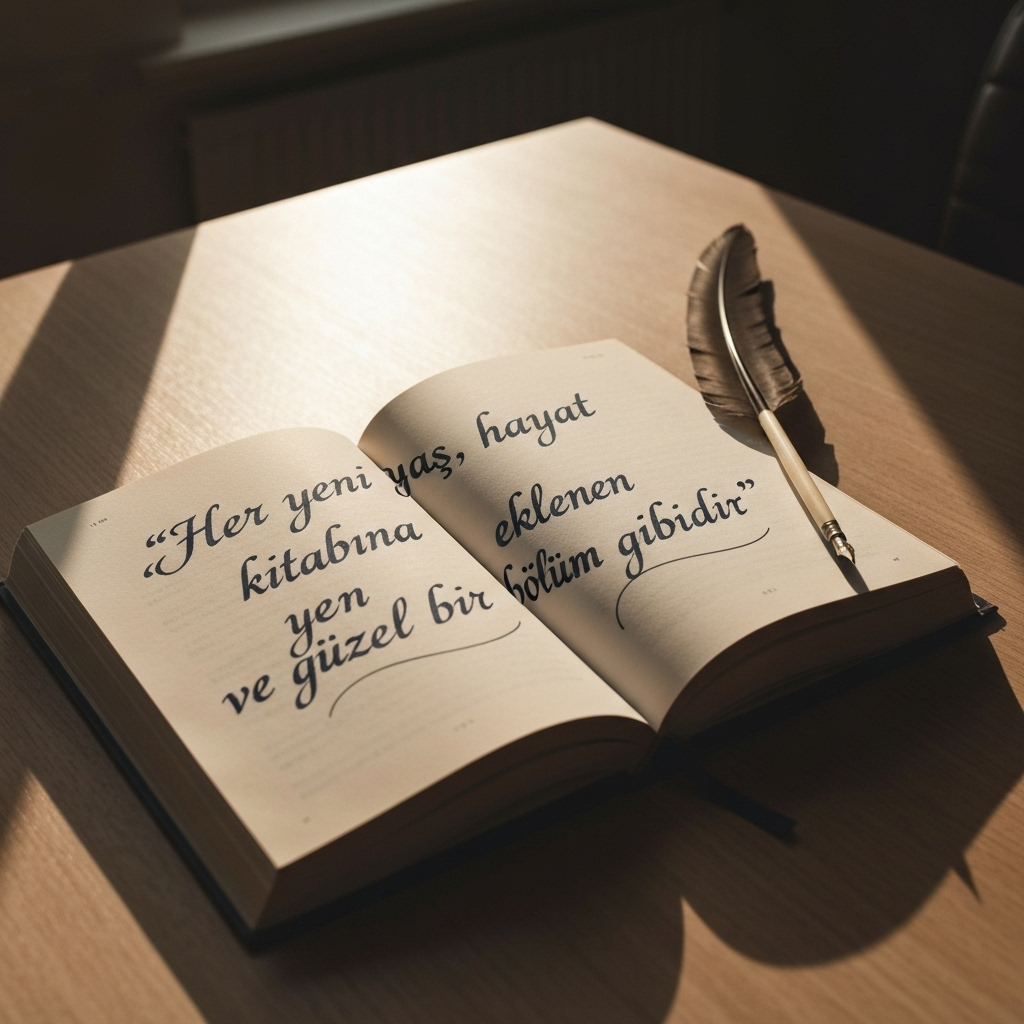 “Her yeni yaş, hayat
kitabına eklenen
yen
ve güzel bir bölüm gibidir”